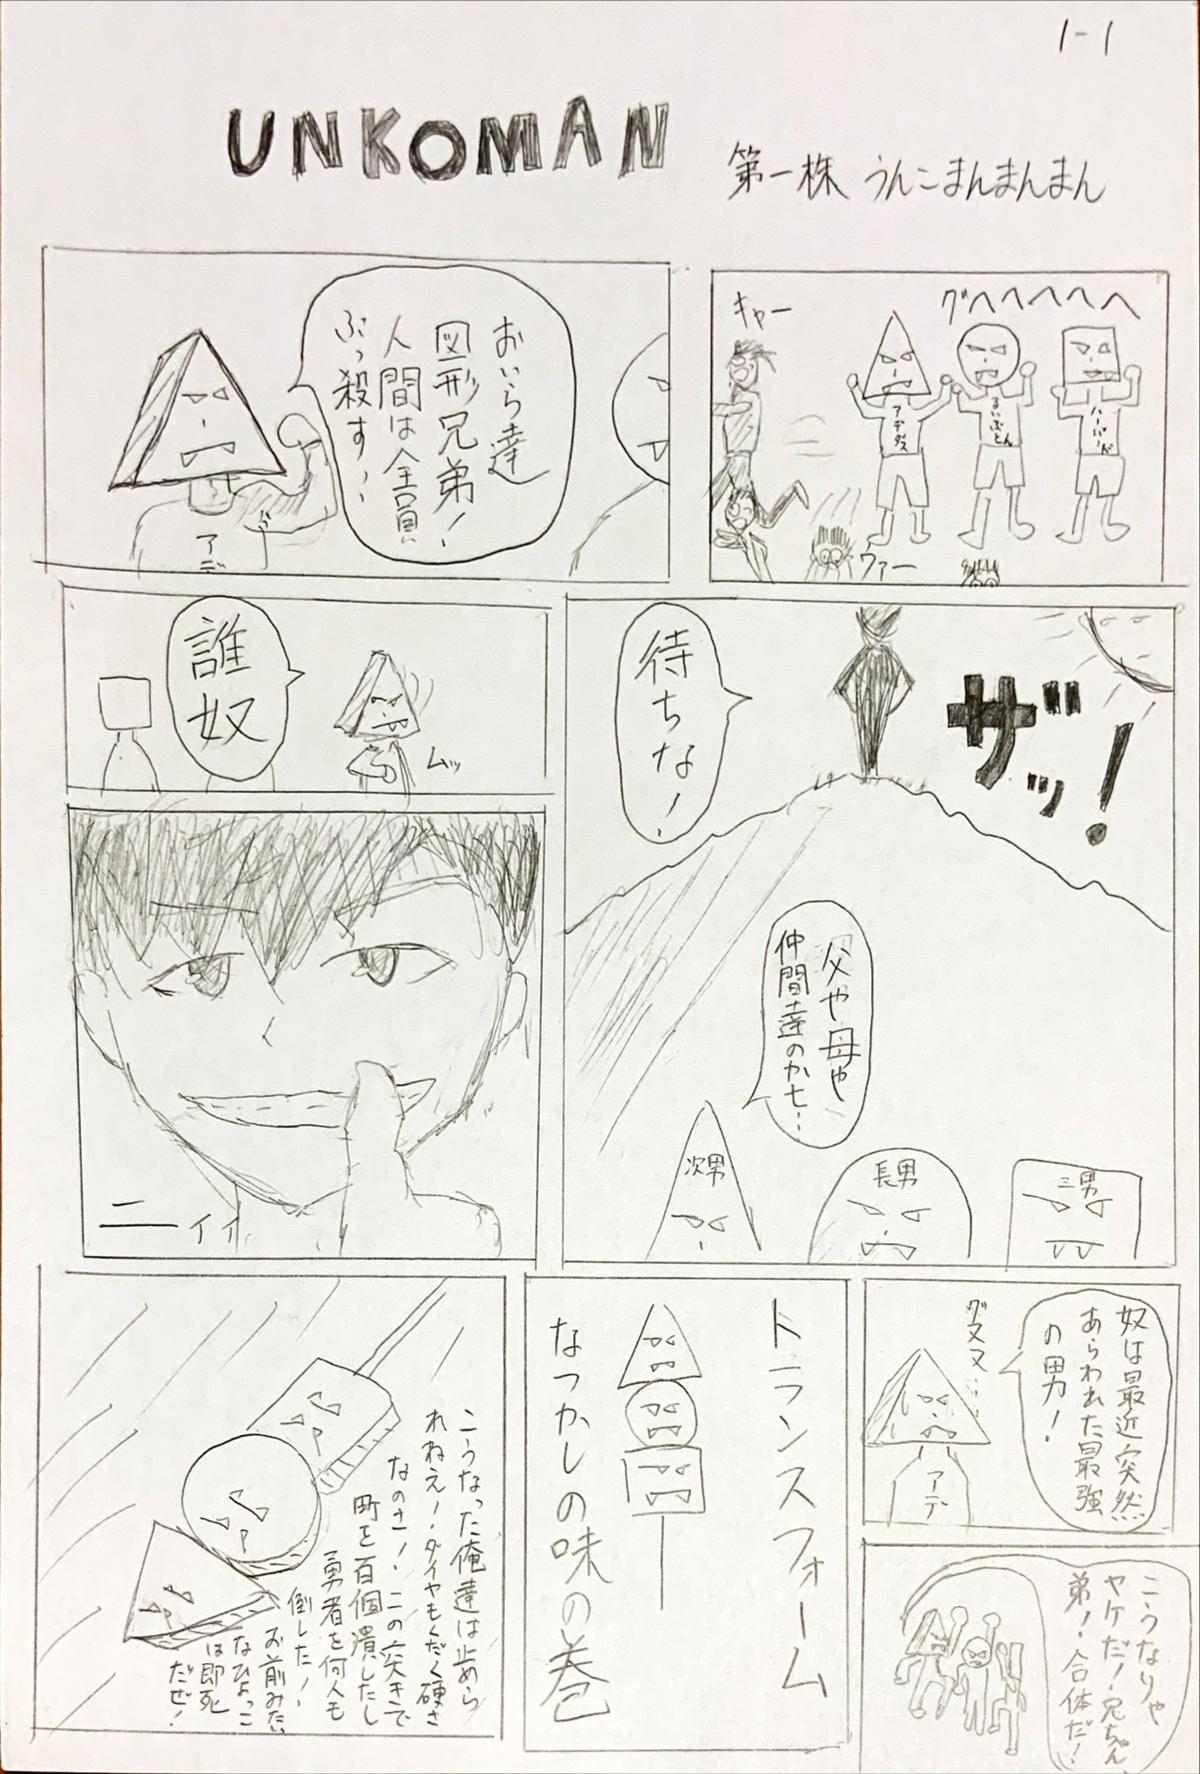 1-1
UNKOMAN
第一株 うんこまんまんまん
キャー
グヘヘヘヘヘ
アデダス
るいぶとん
ハーバード
ウァー
おいら達
図形兄弟!
人間は全員
ぶっ殺す!
アデ
待ちな!
ザッ!
父や母や
仲間達のかたき…
次男
長男
三男
誰奴
ムッ
ニーィィ
奴は最近突然
あらわれた最強
の男!
グヌヌ…
アデ
こうなりゃ
ヤケだ!兄ちゃん、
弟!合体だ!
トランスフォーム
なつかしの味の巻
こうなった俺達は止めら
れねえ!ダイヤもくだく硬さ
なのさ!この突きで
町を百個潰したし
勇者を何人も
倒した!
お前みたい
なひよっこ
は即死
だぜ!